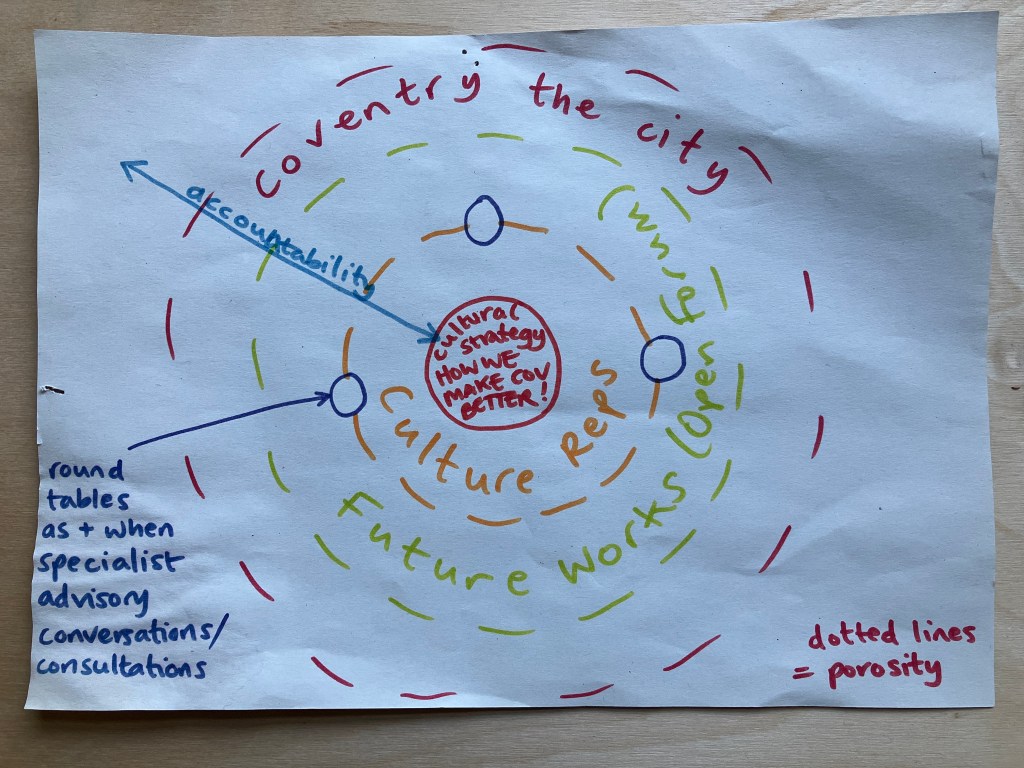 Coventry the city
accountability
cultural
strategy
HOW WE
MAKE COV
BETTER!
Culture Reps
Future Works (Open Forum)
round
tables
as + when
specialist
advisory
conversations/
consultations
dotted lines
= porosity